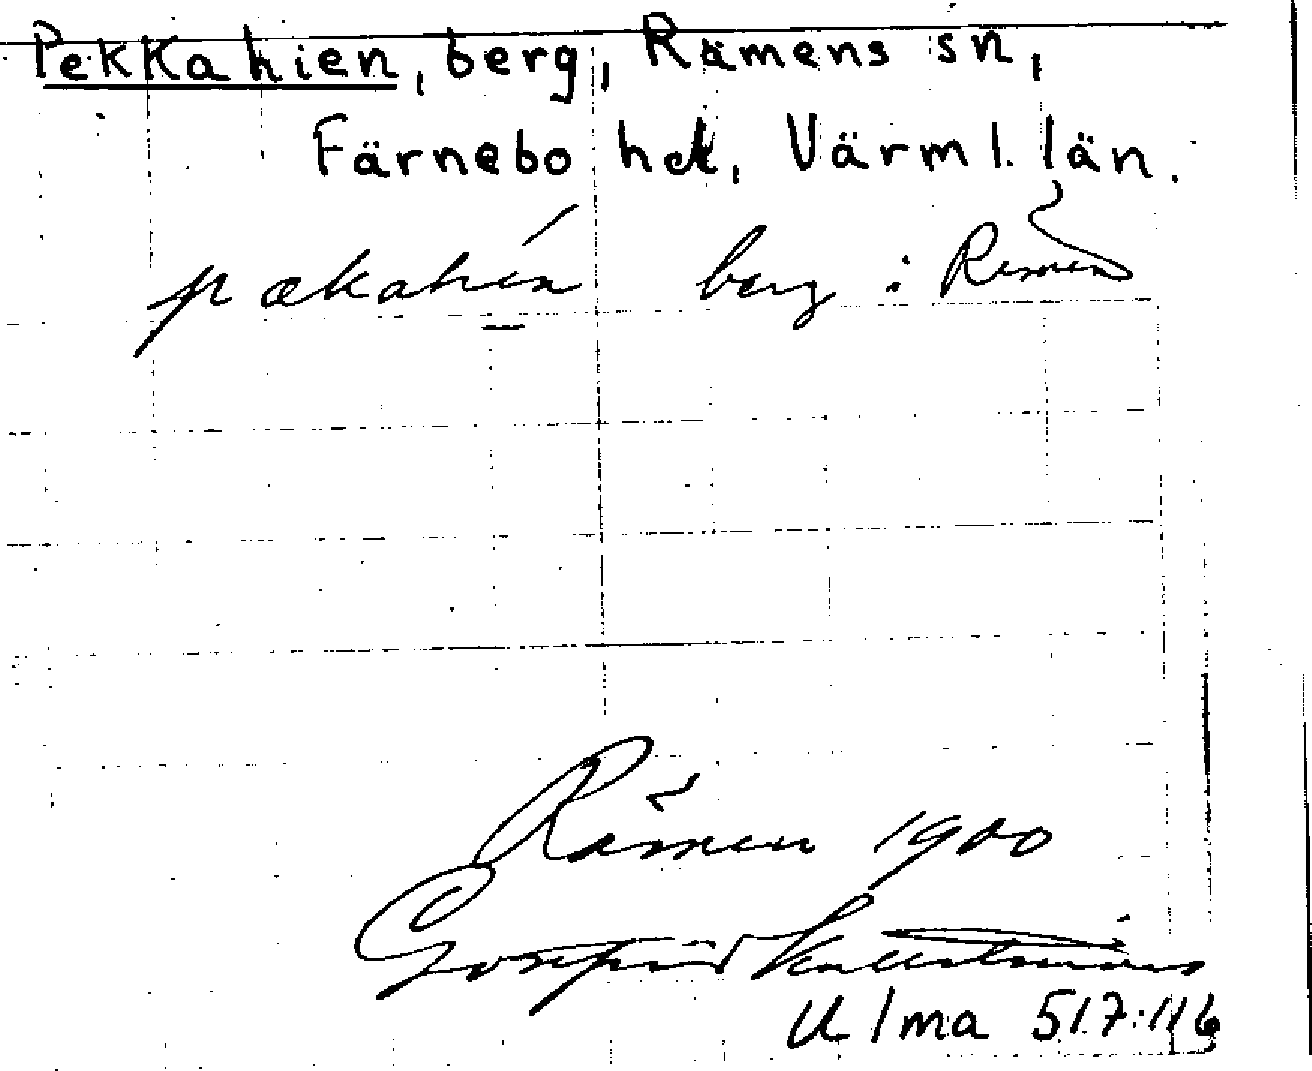 Pekkahien, berg, Rämens sn,
Färnebo hd, Värml. län.
pækahén berg i Rämen
Rämen 1900
Ulma 517:116